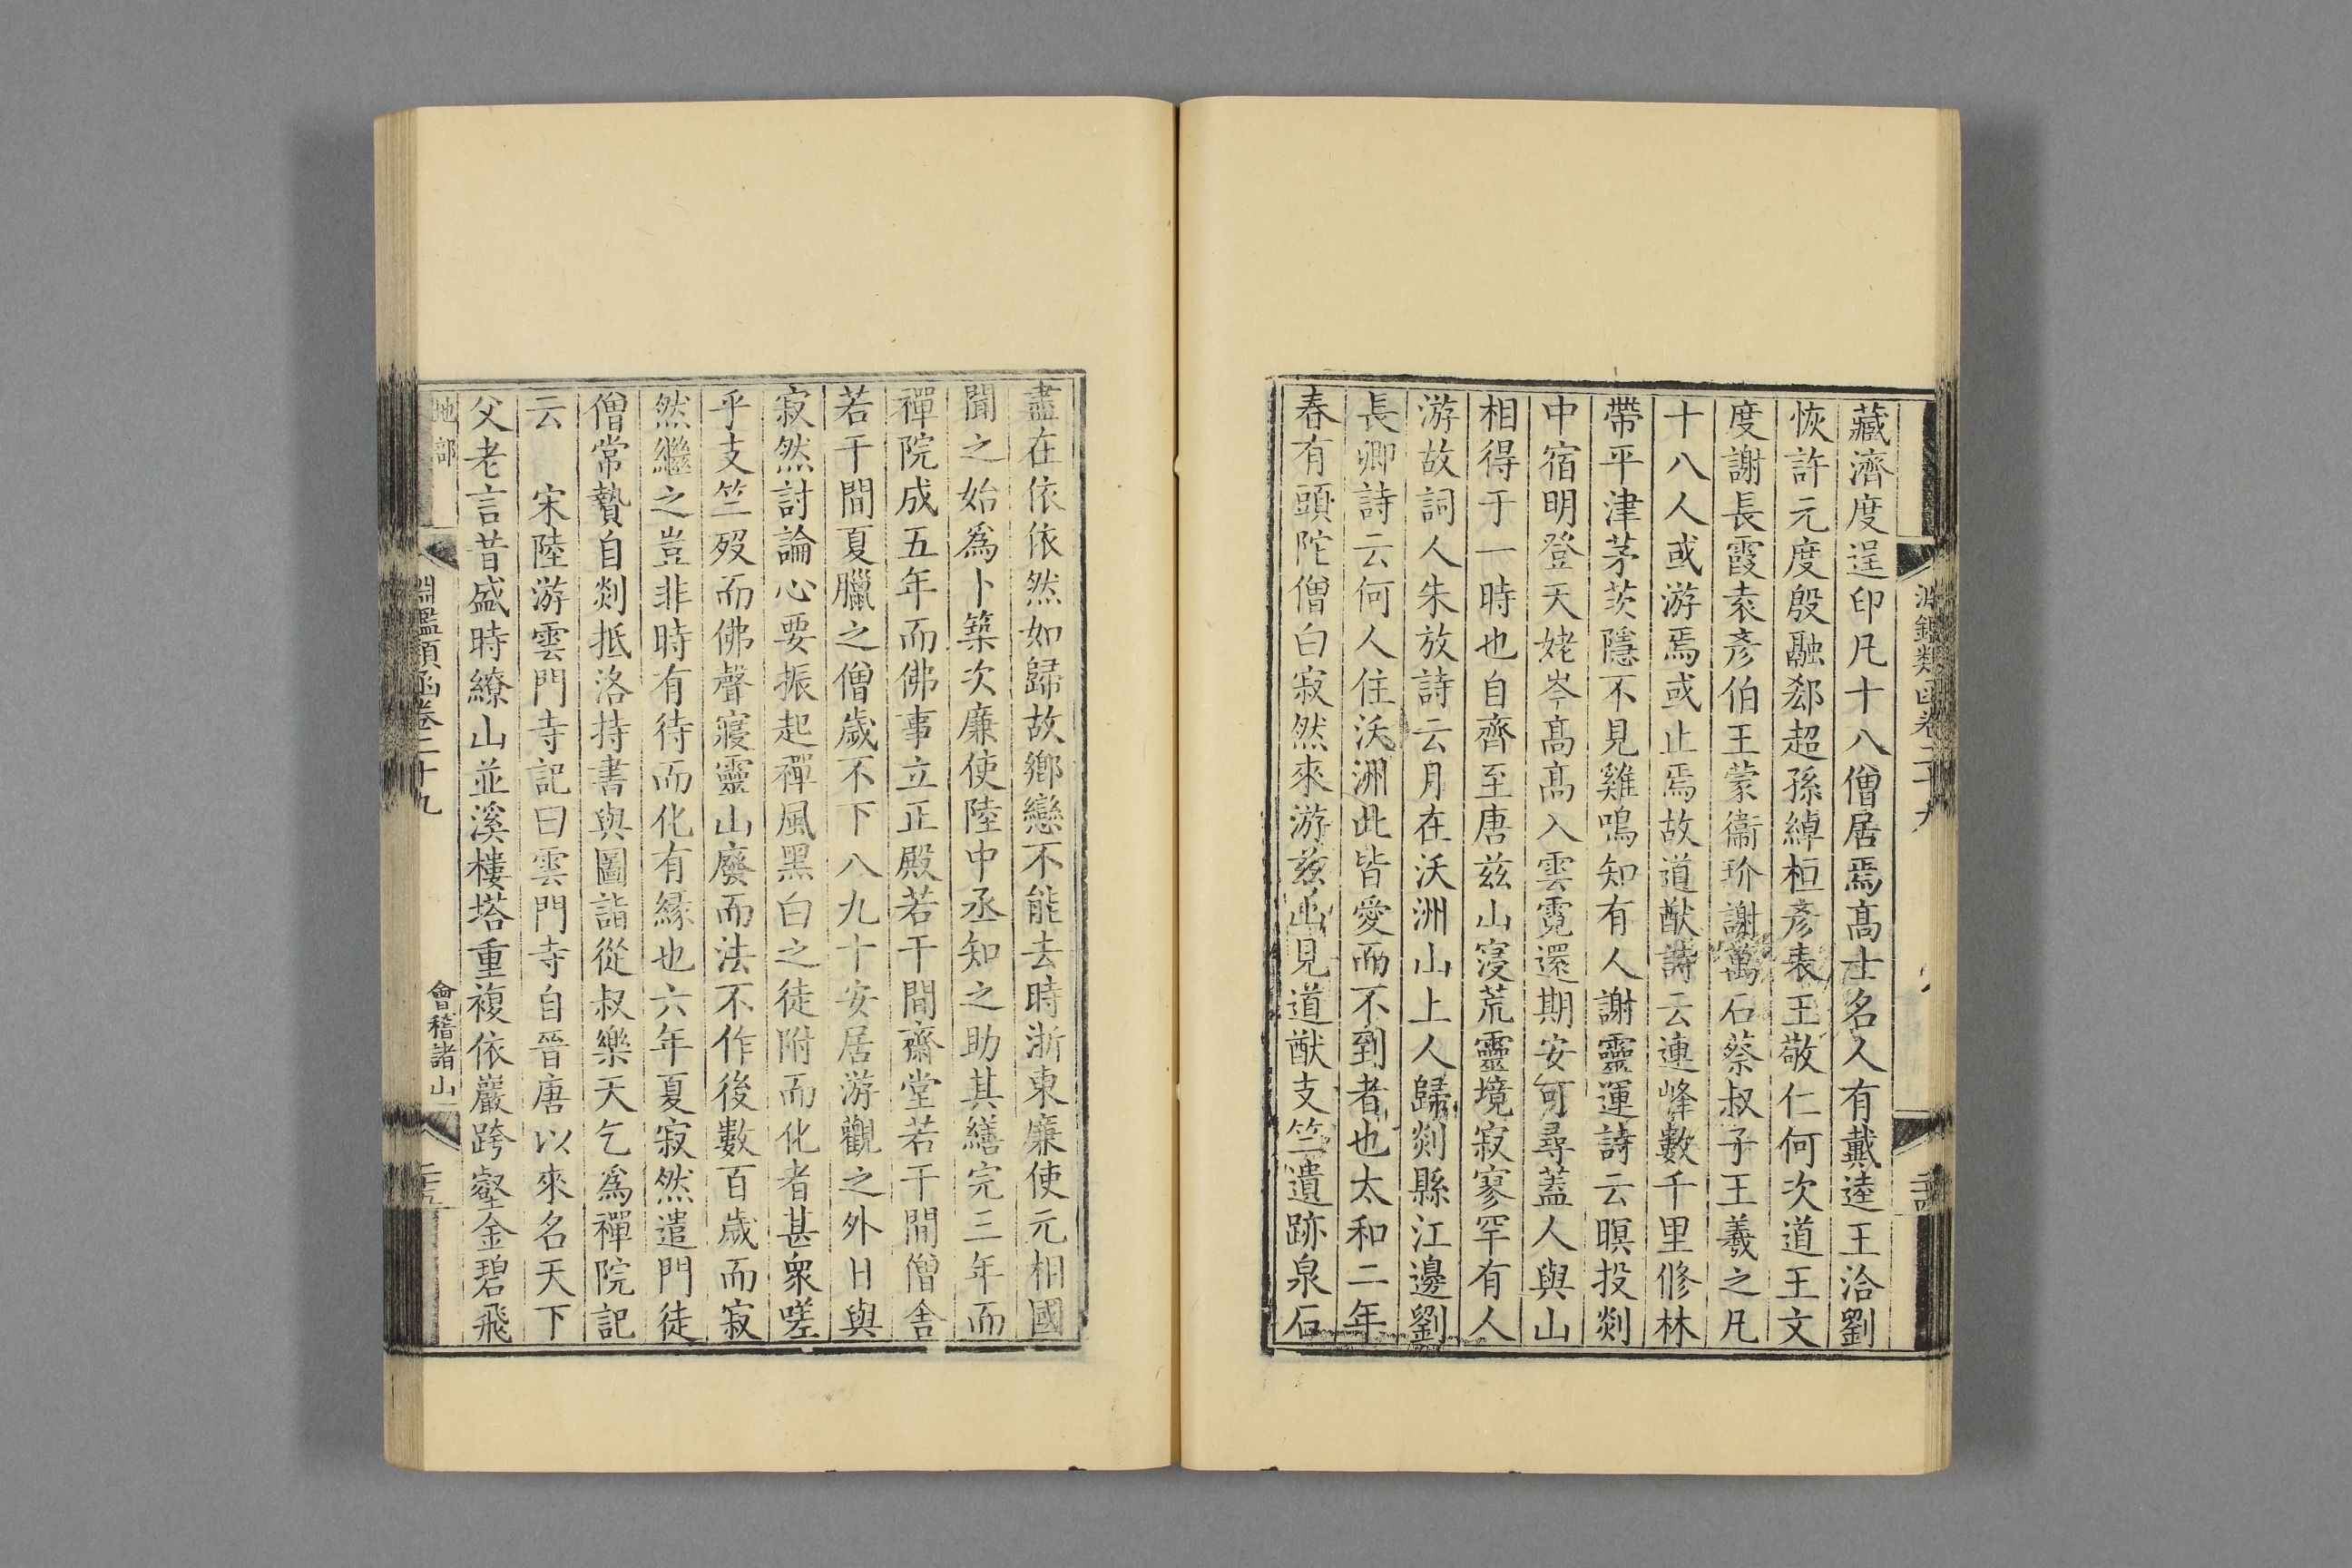 淵鑑類函卷二十九
藏濟度逞印凡十八僧居焉高士名人有戴逵王洽劉
恢許元度殷融郄超孫綽桓彥表王敬仁何次道王文
度謝長霞袁彥伯王蒙衞玠謝萬石蔡叔子王羲之凡
十八人或游焉或止焉故道猷詩云連峰數千里修林
帶平津茅茨隱不見雞鳴知有人謝靈運詩云暝投剡
中宿明登天姥岑高高入雲霓還期安可尋蓋人與山
相得于一時也自齊至唐兹山寖荒靈境寂寥罕有人
游故詞人朱放詩云月在沃洲山上人歸剡縣江邊劉
長卿詩云何人住沃洲此皆愛而不到者也太和二年
春有頭陀僧白寂然來游兹山見道猷支竺遺跡泉石
盡在依依然如歸故鄉戀不能去時浙東廉使元相國
聞之始爲卜築次廉使陸中丞知之助其繕完三年而
禪院成五年而佛事立正殿若干間齋堂若干間僧舍
若干間夏臘之僧歲不下八九十安居游觀之外日與
寂然討論心要振起禪風黑白之徒附而化者甚衆嗟
乎支竺歿而佛聲寢靈山廢而法不作後數百歲而寂
然繼之豈非時有待而化有緣也六年夏寂然遣門徒
僧常贄自剡抵洛持書與圖詣從叔樂天乞爲禪院記
云　宋陸游雲門寺記曰雲門寺自晉唐以來名天下
父老言昔盛時繚山並溪樓塔重複依巖跨壑金碧飛
地部　淵鑑類函卷二十九　會稽諸山一　二十五